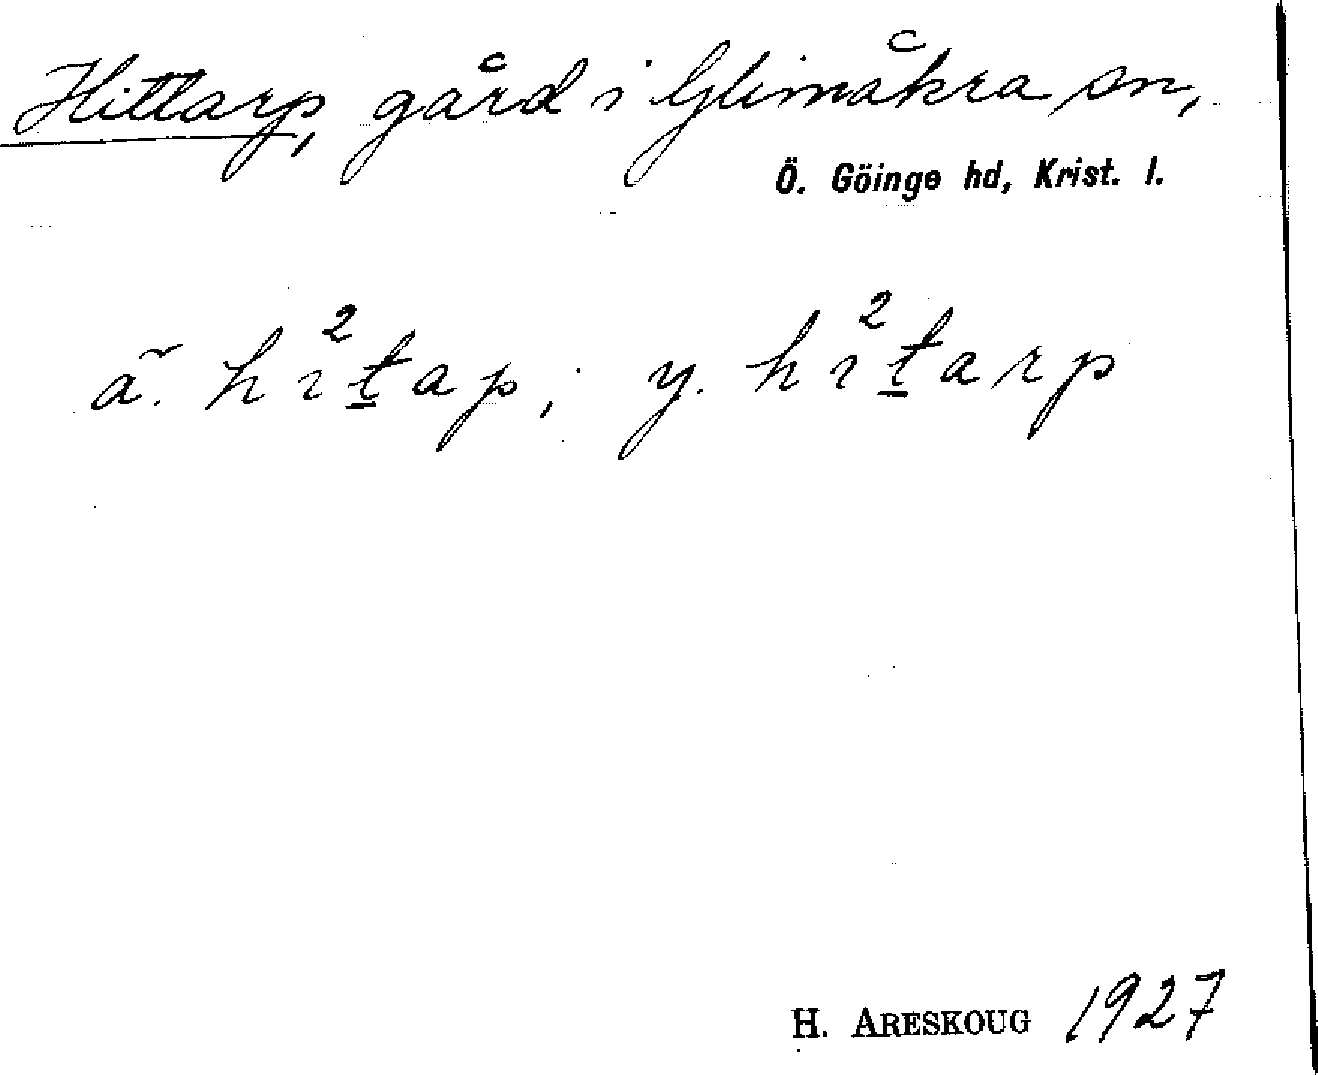 Hittarp, gård i Glimåkra sn,
Ö. Göinge hd, Krist. l.
ä. hı²t̲ap; y. hı²t̲arp
H. ARESKOUG 1927